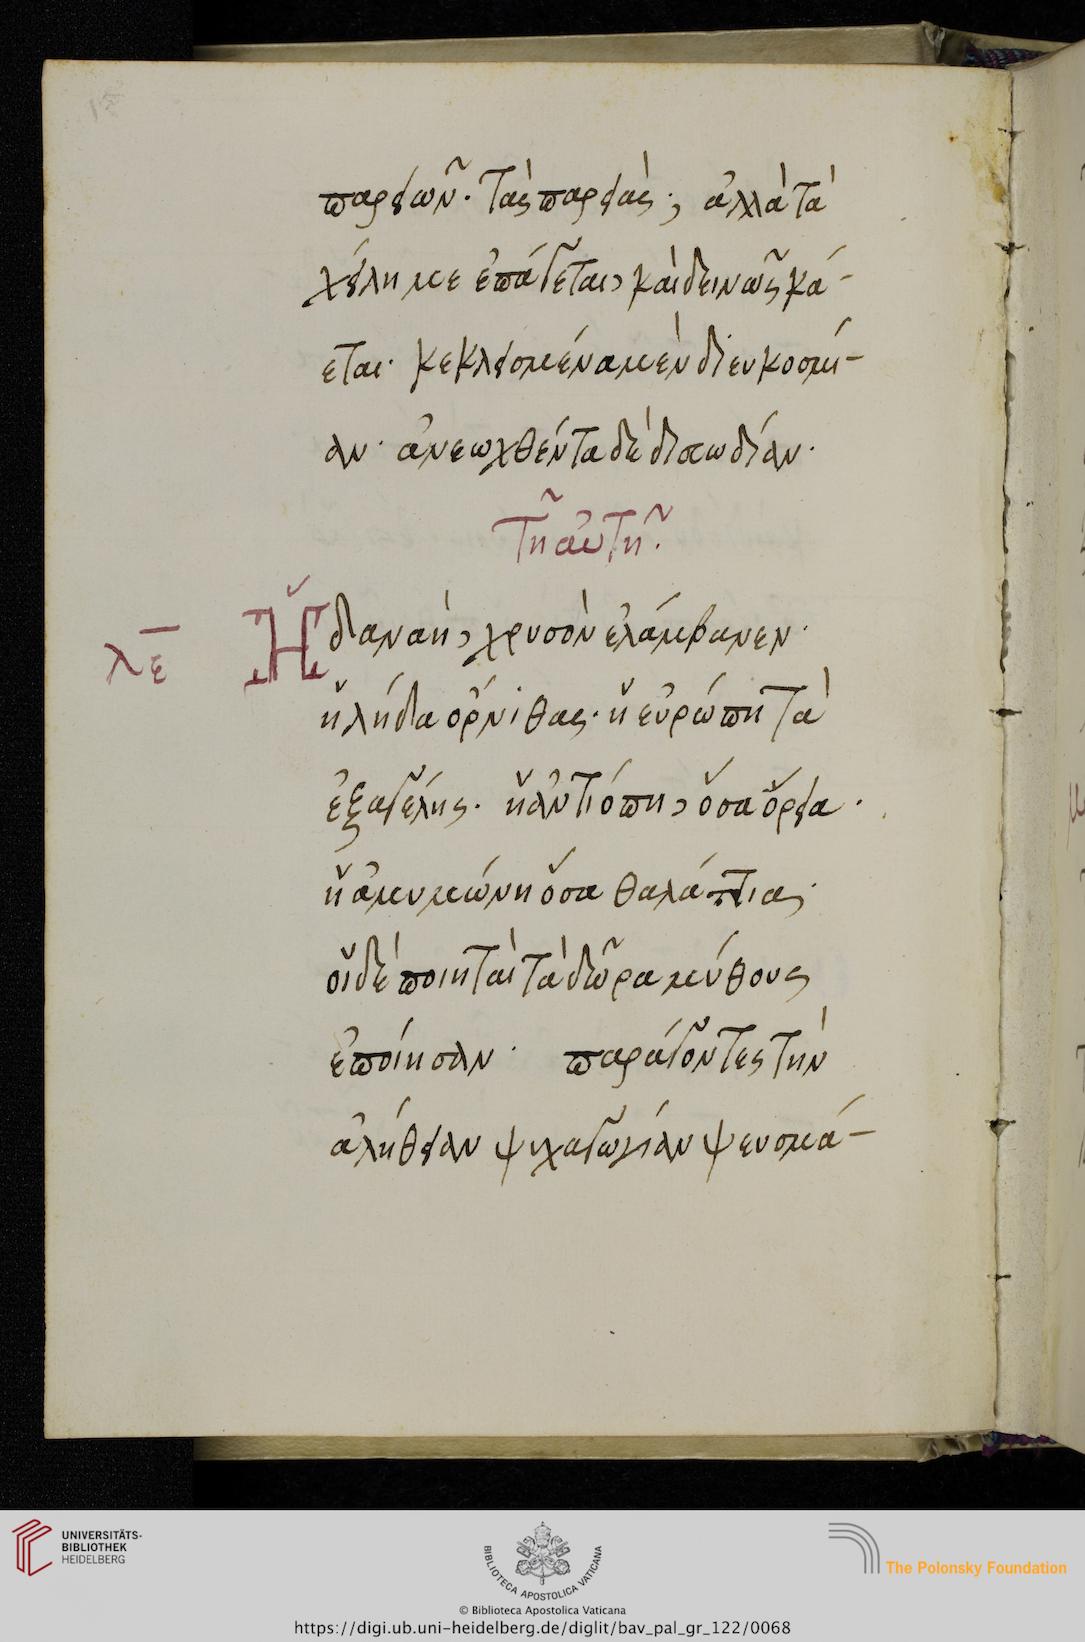 παρειῶν. τὰς παρειάς; ἀλλὰ τὰ
χείλη με ἐπάγεται, καὶ δεινῶς κά-
εται. κεκλεισμένα μὲν δι' εὐκοσμί-
αν. ἀνεωχθέντα δὲ δι' εὐωδίαν.
τῆ αὐτῆ.
λε Ἡ δανάη, χρυσὸν ἐλάμβανεν.
ἡ λήδα ὄρνιθας. ἡ εὐρώπη τὰ
ἐξ ἀγέλης. ἡ ἀντιόπη, ὅσα ὄρεια.
ἡ ἀμυμώνη ὅσα θαλάττια.
οἱ δὲ ποιηταὶ τὰ δῶρα μύθους
ἐποίησαν. παράγοντες τὴν
ἀλήθειαν ψυχαγωγίαν ψευσμά-
UNIVERSITÄTS-
BIBLIOTHEK
HEIDELBERG
BIBLIOTECA APOSTOLICA VATICANA
The Polonsky Foundation
© Biblioteca Apostolica Vaticana
https://digi.ub.uni-heidelberg.de/diglit/bav_pal_gr_122/0068